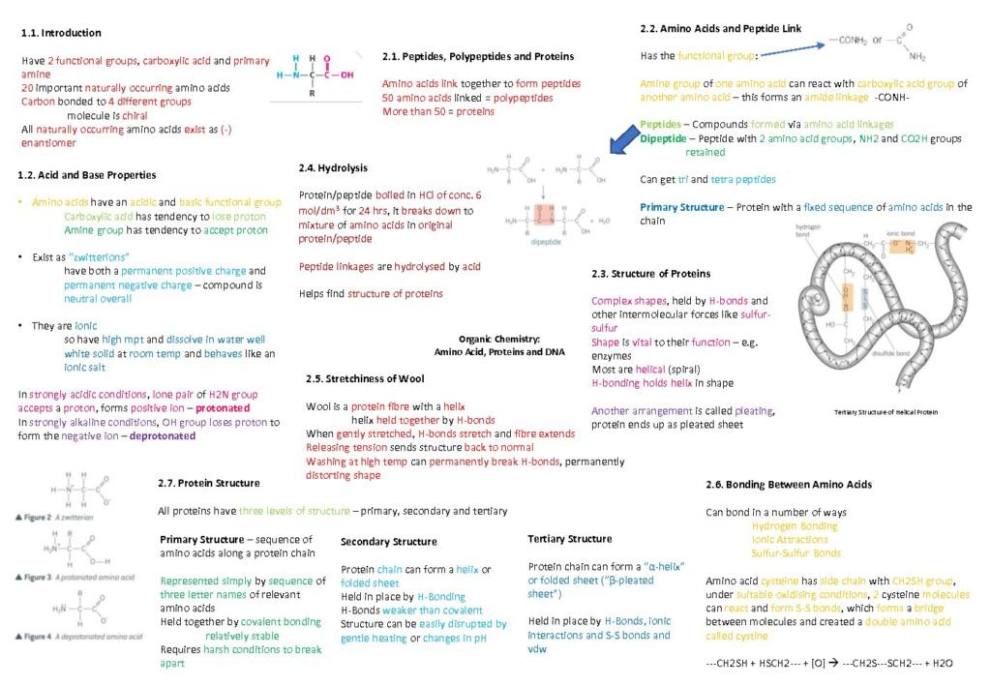 1.1. Introduction
Have 2 functional groups, carboxylic acid and primary
amine
20 important naturally occurring amino acids
Carbon bonded to 4 different groups
molecule is chiral
All naturally occurring amino acids exist as (-)
enantiomer
H H O
H-N-C-C-OH
R
1.2. Acid and Base Properties
• Amino acids have an acidic and basic functional group
Carboxylic acid has tendency to lose proton
Amine group has tendency to accept proton
• Exist as "zwitterions"
have both a permanent positive charge and
permanent negative charge – compound is
neutral overall
• They are ionic
so have high mpt and dissolve in water well
white solid at room temp and behaves like an
ionic salt
In strongly acidic conditions, lone pair of H2N group
accepts a proton, forms positive ion – protonated
In strongly alkaline conditions, OH group loses proton to
form the negative ion – deprotonated
2.1. Peptides, Polypeptides and Proteins
Amino acids link together to form peptides
50 amino acids linked = polypeptides
More than 50 = proteins
2.4. Hydrolysis
Protein/peptide boiled in HCl of conc. 6
mol/dm³ for 24 hrs, it breaks down to
mixture of amino acids in original
protein/peptide
Peptide linkages are hydrolysed by acid
Helps find structure of proteins
dipeptide
2.2. Amino Acids and Peptide Link
Has the functional group:
---CONH₂ or
O
NH₂
Amine group of one amino acid can react with carboxylic acid group of
another amino acid – this forms an amide linkage -CONH-
Peptides – Compounds formed via amino acid linkages
Dipeptide – Peptide with 2 amino acid groups, NH2 and CO2H groups
retained
Can get tri and tetra peptides
Primary Structure – Protein with a fixed sequence of amino acids in the
chain
2.3. Structure of Proteins
Complex shapes, held by H-bonds and
other intermolecular forces like sulfur-
sulfur
Shape is vital to their function – e.g.
enzymes
Most are helical (spiral)
H-bonding holds helix in shape
Another arrangement is called pleating,
protein ends up as pleated sheet
hydrogen
bond
ionic bond
disulfide bond
Tertiary Structure of Helical Protein
Organic Chemistry:
Amino Acid, Proteins and DNA
2.5. Stretchiness of Wool
Wool is a protein fibre with a helix
helix held together by H-bonds
When gently stretched, H-bonds stretch and fibre extends
Releasing tension sends structure back to normal
Washing at high temp can permanently break H-bonds, permanently
distorting shape
▲ Figure 2 A zwitterion
▲ Figure 3 A protonated amino acid
▲ Figure 4 A deprotonated amino acid
2.7. Protein Structure
All proteins have three levels of structure – primary, secondary and tertiary
Primary Structure – sequence of
amino acids along a protein chain
Represented simply by sequence of
three letter names of relevant
amino acids
Held together by covalent bonding
relatively stable
Requires harsh conditions to break
apart
Secondary Structure
Protein chain can form a helix or
folded sheet
Held in place by H-Bonding
H-Bonds weaker than covalent
Structure can be easily disrupted by
gentle heating or changes in pH
Tertiary Structure
Protein chain can form a "α-helix"
or folded sheet ("β-pleated
sheet")
Held in place by H-Bonds, ionic
interactions and S-S bonds and
vdw
2.6. Bonding Between Amino Acids
Can bond in a number of ways
Hydrogen Bonding
Ionic Attractions
Sulfur-Sulfur Bonds
Amino acid cysteine has side chain with CH2SH group,
under suitable oxidising conditions, 2 cysteine molecules
can react and form S-S bonds, which forms a bridge
between molecules and created a double amino acid
called cystine
---CH2SH + HSCH2--- + [O] → ---CH2S---SCH2--- + H2O